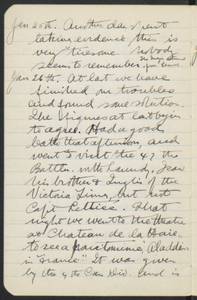 Jan 25th. Another day spent
taking evidence this is
very tiresome nobody
seems to remember
Jan 26th. At last we have
finished our troubles
and found some
The at last began
to agree. Had a good
bath that afternoon, and
went to visit the 47th
Battn. with Laundy, Jean
his brother & Inglis of the
Victoria Lines, but met
Capt. Pettice. That
night we went to the theatre
at Chateau de la Haie,
to see a pantomime, "Aladdin
in France" It was given
by the 4th Can Div. and is